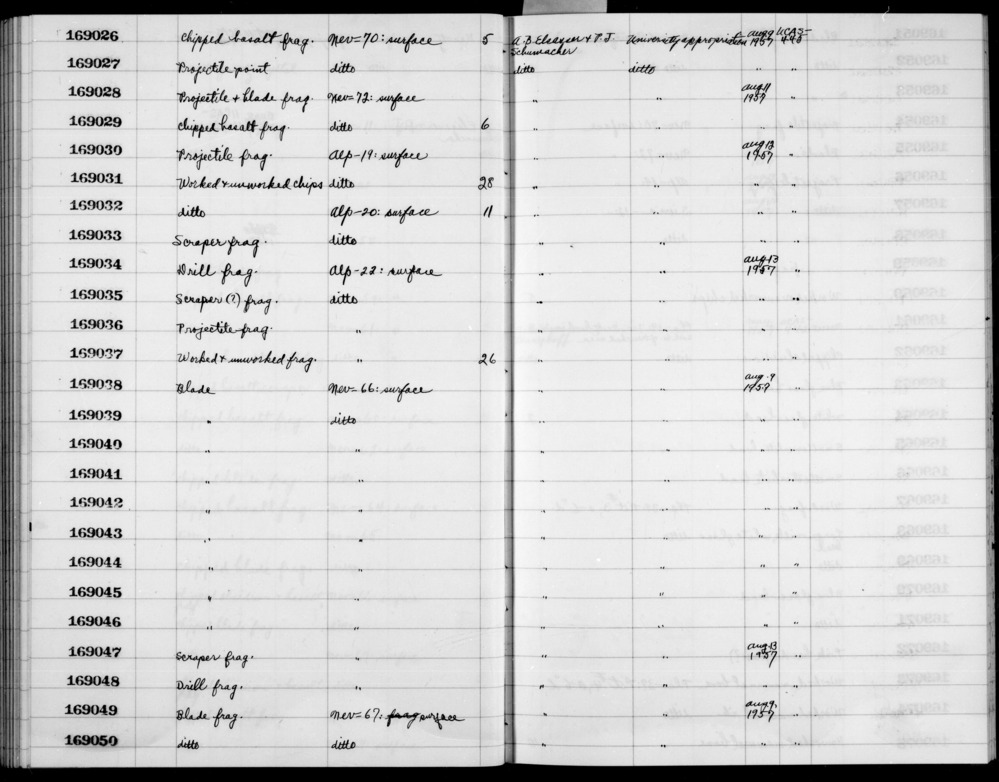 169026 Chipped basalt frag. Nev-70: surface 5 A. B. Elsasser & P. J. Schumacher University appropriation Aug 9 1957 UCAS-
169027 Projectile point ditto ditto ditto " "
169028 Projectile & blade frag. Nev-72: surface " " Aug 11 1957 "
169029 Chipped basalt frag. ditto 6 " " " "
169030 Projectile frag. Alp-19: surface " " Aug 13 1957 "
169031 Worked & unworked chips ditto 28 " " " "
169032 ditto Alp-20: surface 11 " " " "
169033 Scraper frag. ditto " " " "
169034 Drill frag. Alp-22: surface " " Aug 13 1957 "
169035 Scraper (?) frag. ditto " " " "
169036 Projectile frag. " " " " "
169037 Worked & unworked frag. " 26 " " " "
169038 Blade Nev-66: surface " " Aug 9 1957 "
169039 " ditto " " " "
169040 " " " " " "
169041 " " " " " "
169042 " " " " " "
169043 " " " " " "
169044 " " " " " "
169045 " " " " " "
169046 " " " " " "
169047 Scraper frag. " " " Aug 13 1957 "
169048 Drill frag. " " " " "
169049 Blade frag. Nev-67: frag surface " " Aug 9, 1957 "
169050 ditto ditto " " " "